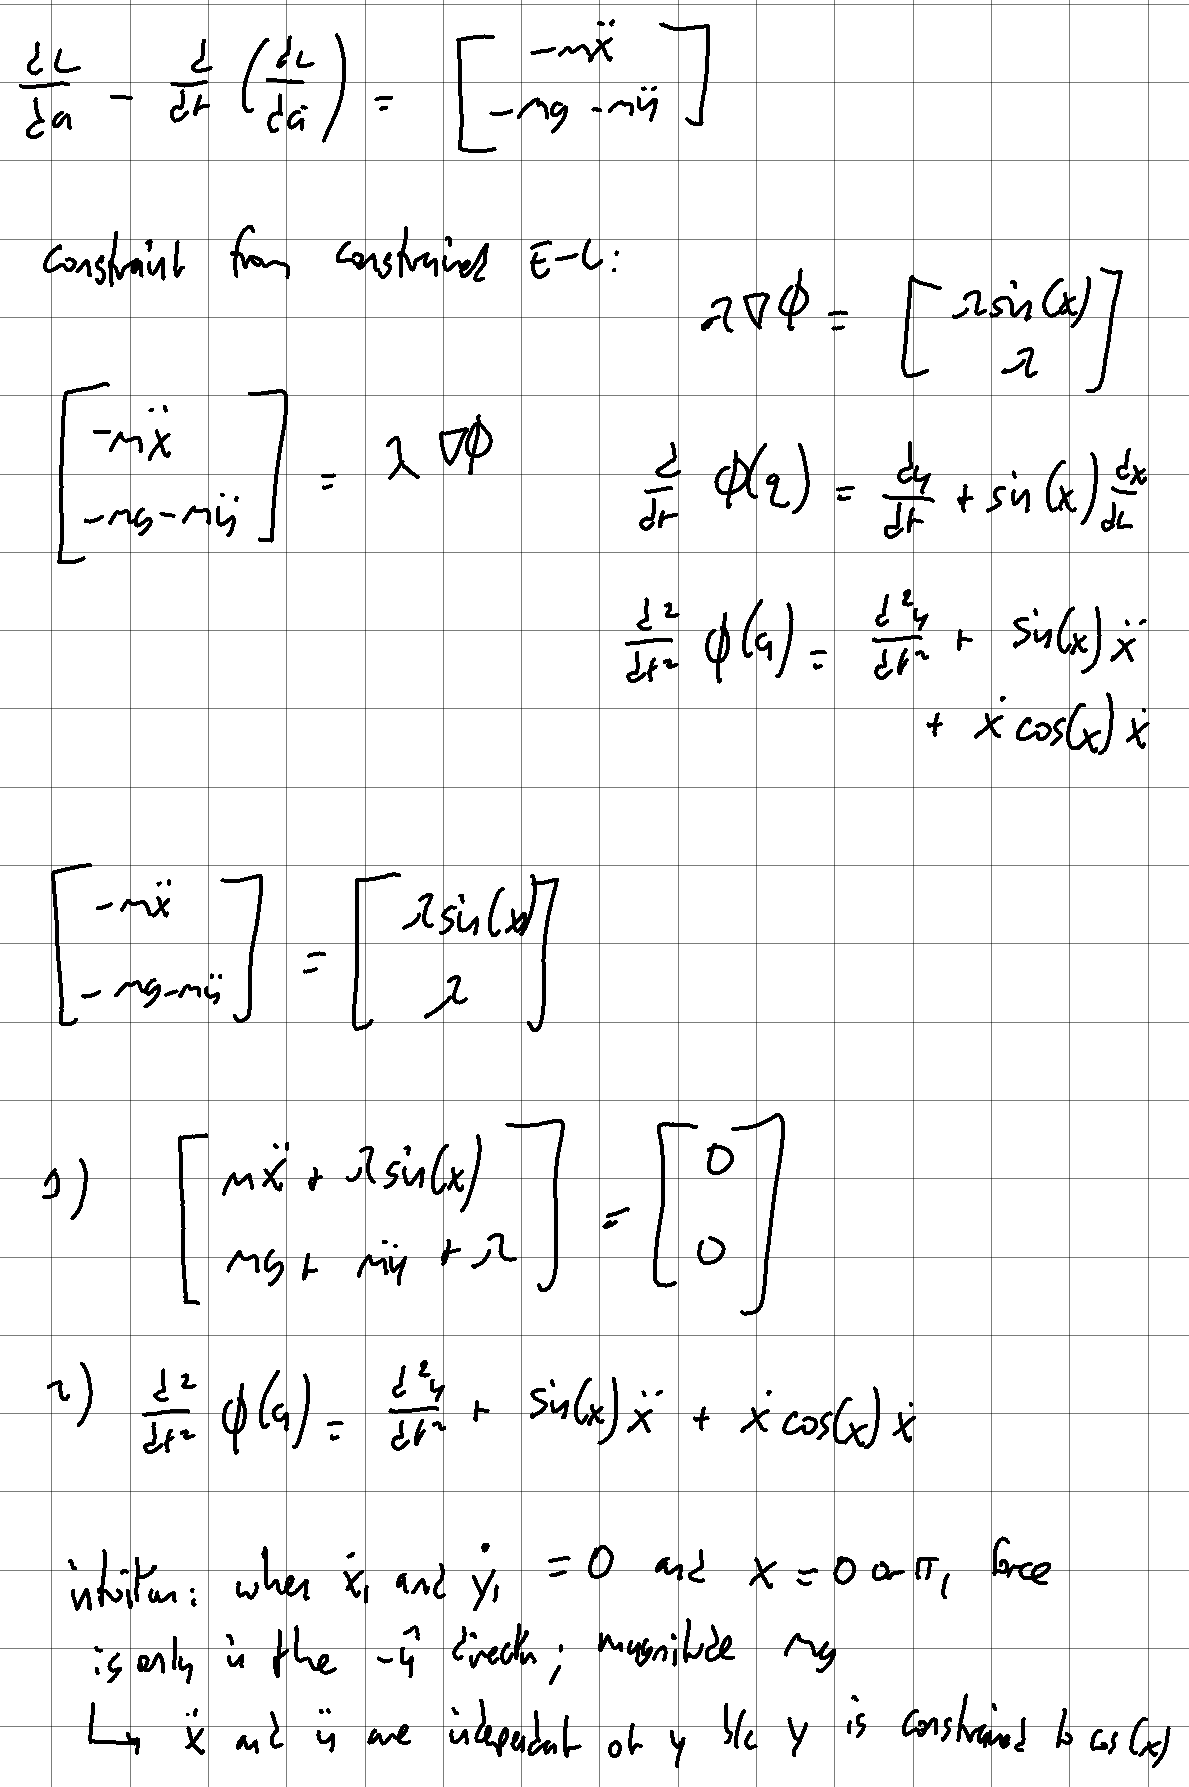 dL/dq - d/dt (dL/dq̇) = [ -mẍ ; -mg - mÿ ]
constraint from constrained E-L:
λ∇ϕ = [ λsin(x) ; λ ]
[ -mẍ ; -mg-mÿ ] = λ ∇ϕ
d/dt ϕ(q) = dy/dt + sin(x) dx/dt
d²/dt² ϕ(q) = d²y/dt² + sin(x) ẍ
+ ẋ cos(x) ẋ
[ -mẍ ; -mg-mÿ ] = [ λsin(x) ; λ ]
1) [ mẍ + λsin(x) ; mg + mÿ + λ ] = [ 0 ; 0 ]
2) d²/dt² ϕ(q) = d²y/dt² + sin(x) ẍ + ẋ cos(x) ẋ
intuition: when ẋ₁ and ẏ₁ = 0 and x = 0 or π, force
is only in the -ŷ direction; magnitude mg
↳ ẍ and ÿ are independent of y b/c y is constrained to cos(x)